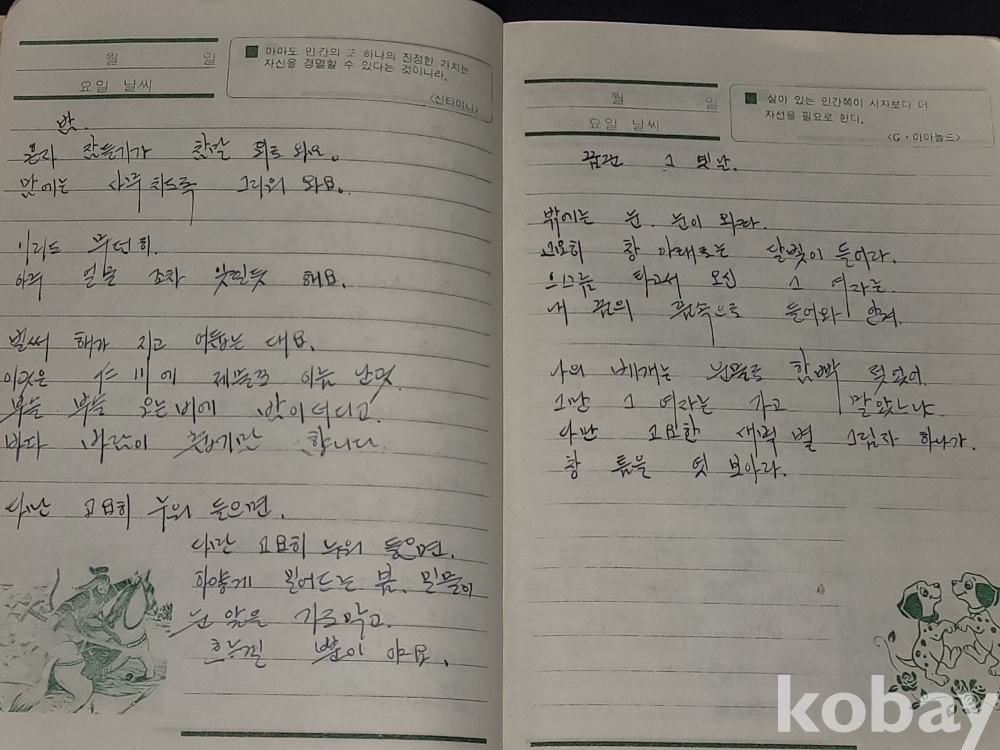 월 일
요일 날씨
아마도 인간의 또 하나의 진정한 가치는
자신을 경멸할 수 있다는 것이니라.
<산티아나>
밤
혼자 잠들기가 참말 외로 와요.
맘에는 사무치도록 그리워 와요.
이리도 무던히.
아주 얼굴 조차 잊힐듯 해요.
벌써 해가 지고 어둡는 대요.
이곳은 仁川에 제물포 이름 난 곳.
부슬 부슬 오는 비에 밤이 더디고
바다 바람이 춥기만 합니다.
다만 고요히 누워 들으면.
다만 고요히 누워 들으면.
하얗게 밀어드는 봄. 밀물이
눈 앞을 가로막고.
흐느낄 뿐이 야요.
월 일
요일 날씨
살아 있는 인간쪽이 사자보다 더
자선을 필요로 한다.
<G·아아놀드>
꿈꾼 그 옛날.
밖에는 눈. 눈이 와라.
고요히 창 아래로는 달빛이 들어라.
으스름 타고서 오신 그 여자는.
내 꿈의 품속으로 들어와 안겨.
나의 베개는 눈물로 함빡 젖었어.
그만 그 여자는 가고 말았느냐.
다만 고요한 새벽 별 그림자 하나가.
창 틈을 엿 보아라.
kobay